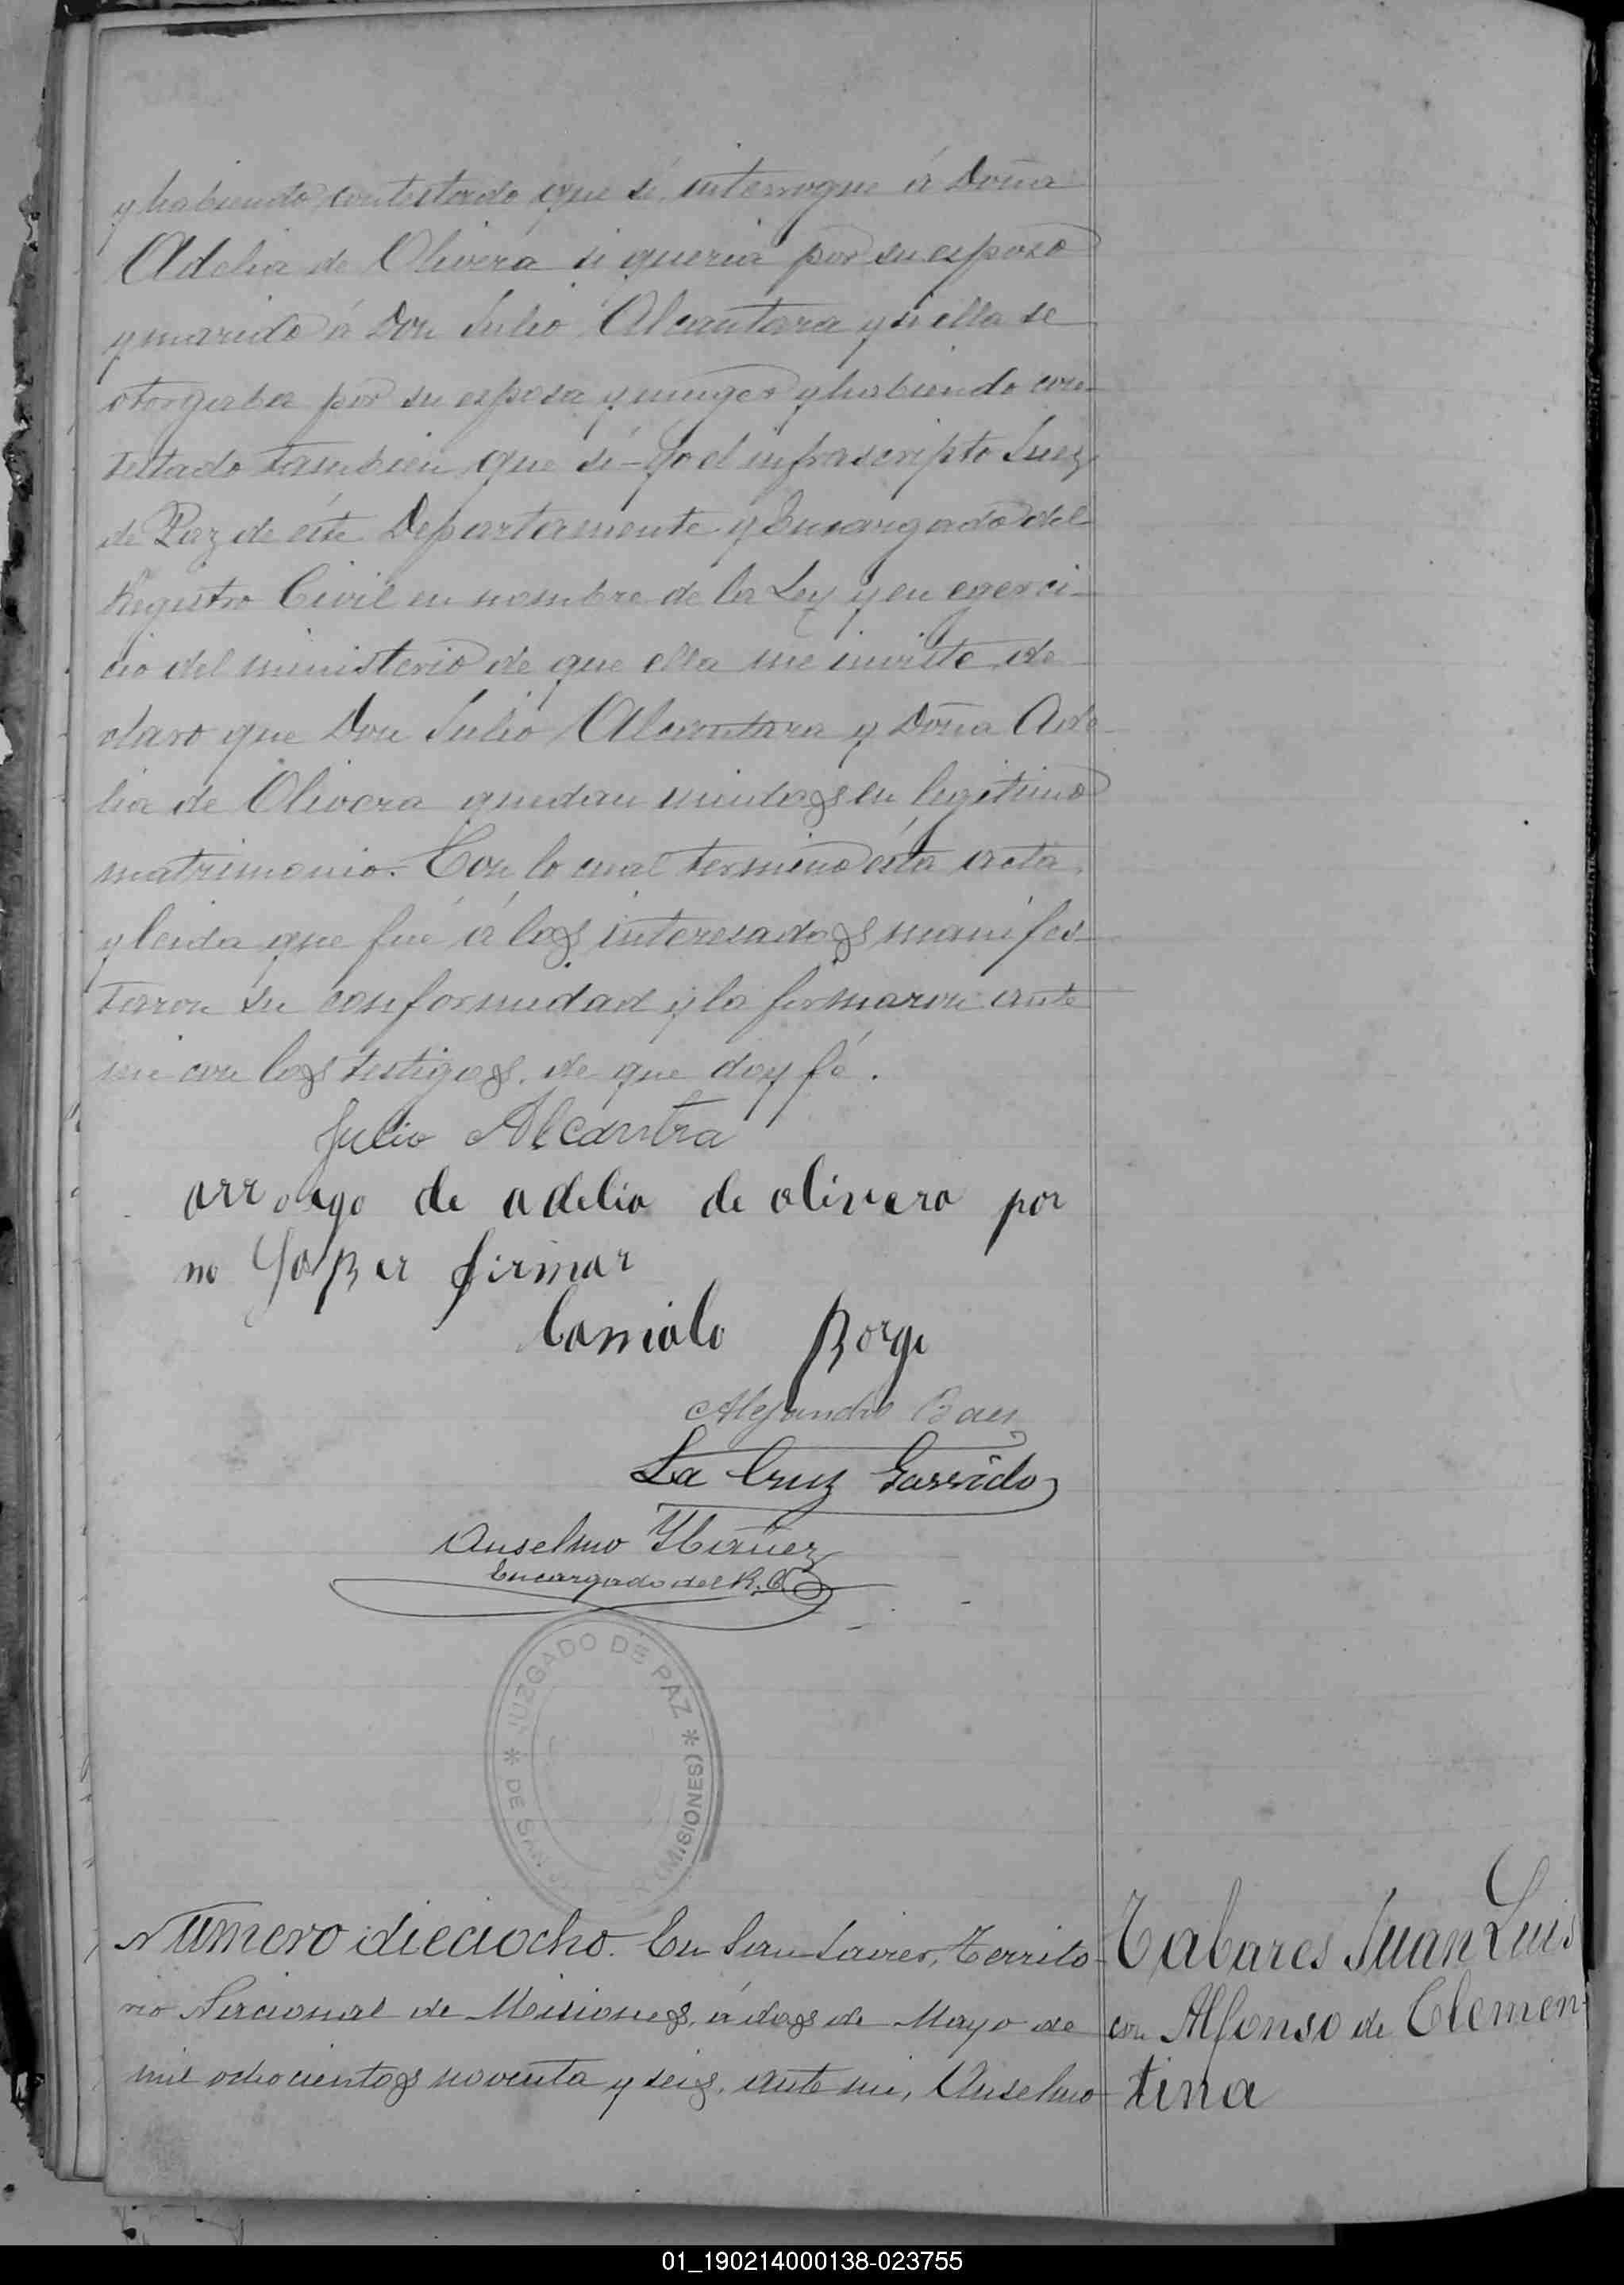 y habiendo contestado que sí, interrogue á Doña
Adelia de Olivera si queria por su esposo
y marido á Don Julio Alcantara y si ella se
otorgaba por su esposa y muger y habiendo con-
testado tambien que sí - Yo el infrascripto Juez
de Paz de éste Departamente y Encargado del
Registro Civil en nombre de la Ley y en egerci-
cio del ministerio de que ella me inviste de
claro que Don Julio Alcantara y Doña Ade-
lia de Olivera quedan unidos en legitimo
matrimonio. Con lo cual terminó ésta acta
y leida que fué á los interesados manifes-
taron su conformidad y la firmaron ante
mi con los testigos, de que doy fé.
Julio Alcantra
arroego de adelia de olivera por
no Saber firmar
Camialo Borge
Alejandro
La Cruz Garrido
Anselmo Ybañez
Encargado del R. C
JUZGADO DE PAZ * (MISIONES) * DE SAN
Número dieciocho. En San Javier, Territo-
rio Nacional de Misiones, á dos de Mayo de
mil ochocientos noventa y seis, ante mi, Anselmo
Tabares Juan Luis
con Alfonso de Clemen-
tina
01_190214000138-023755